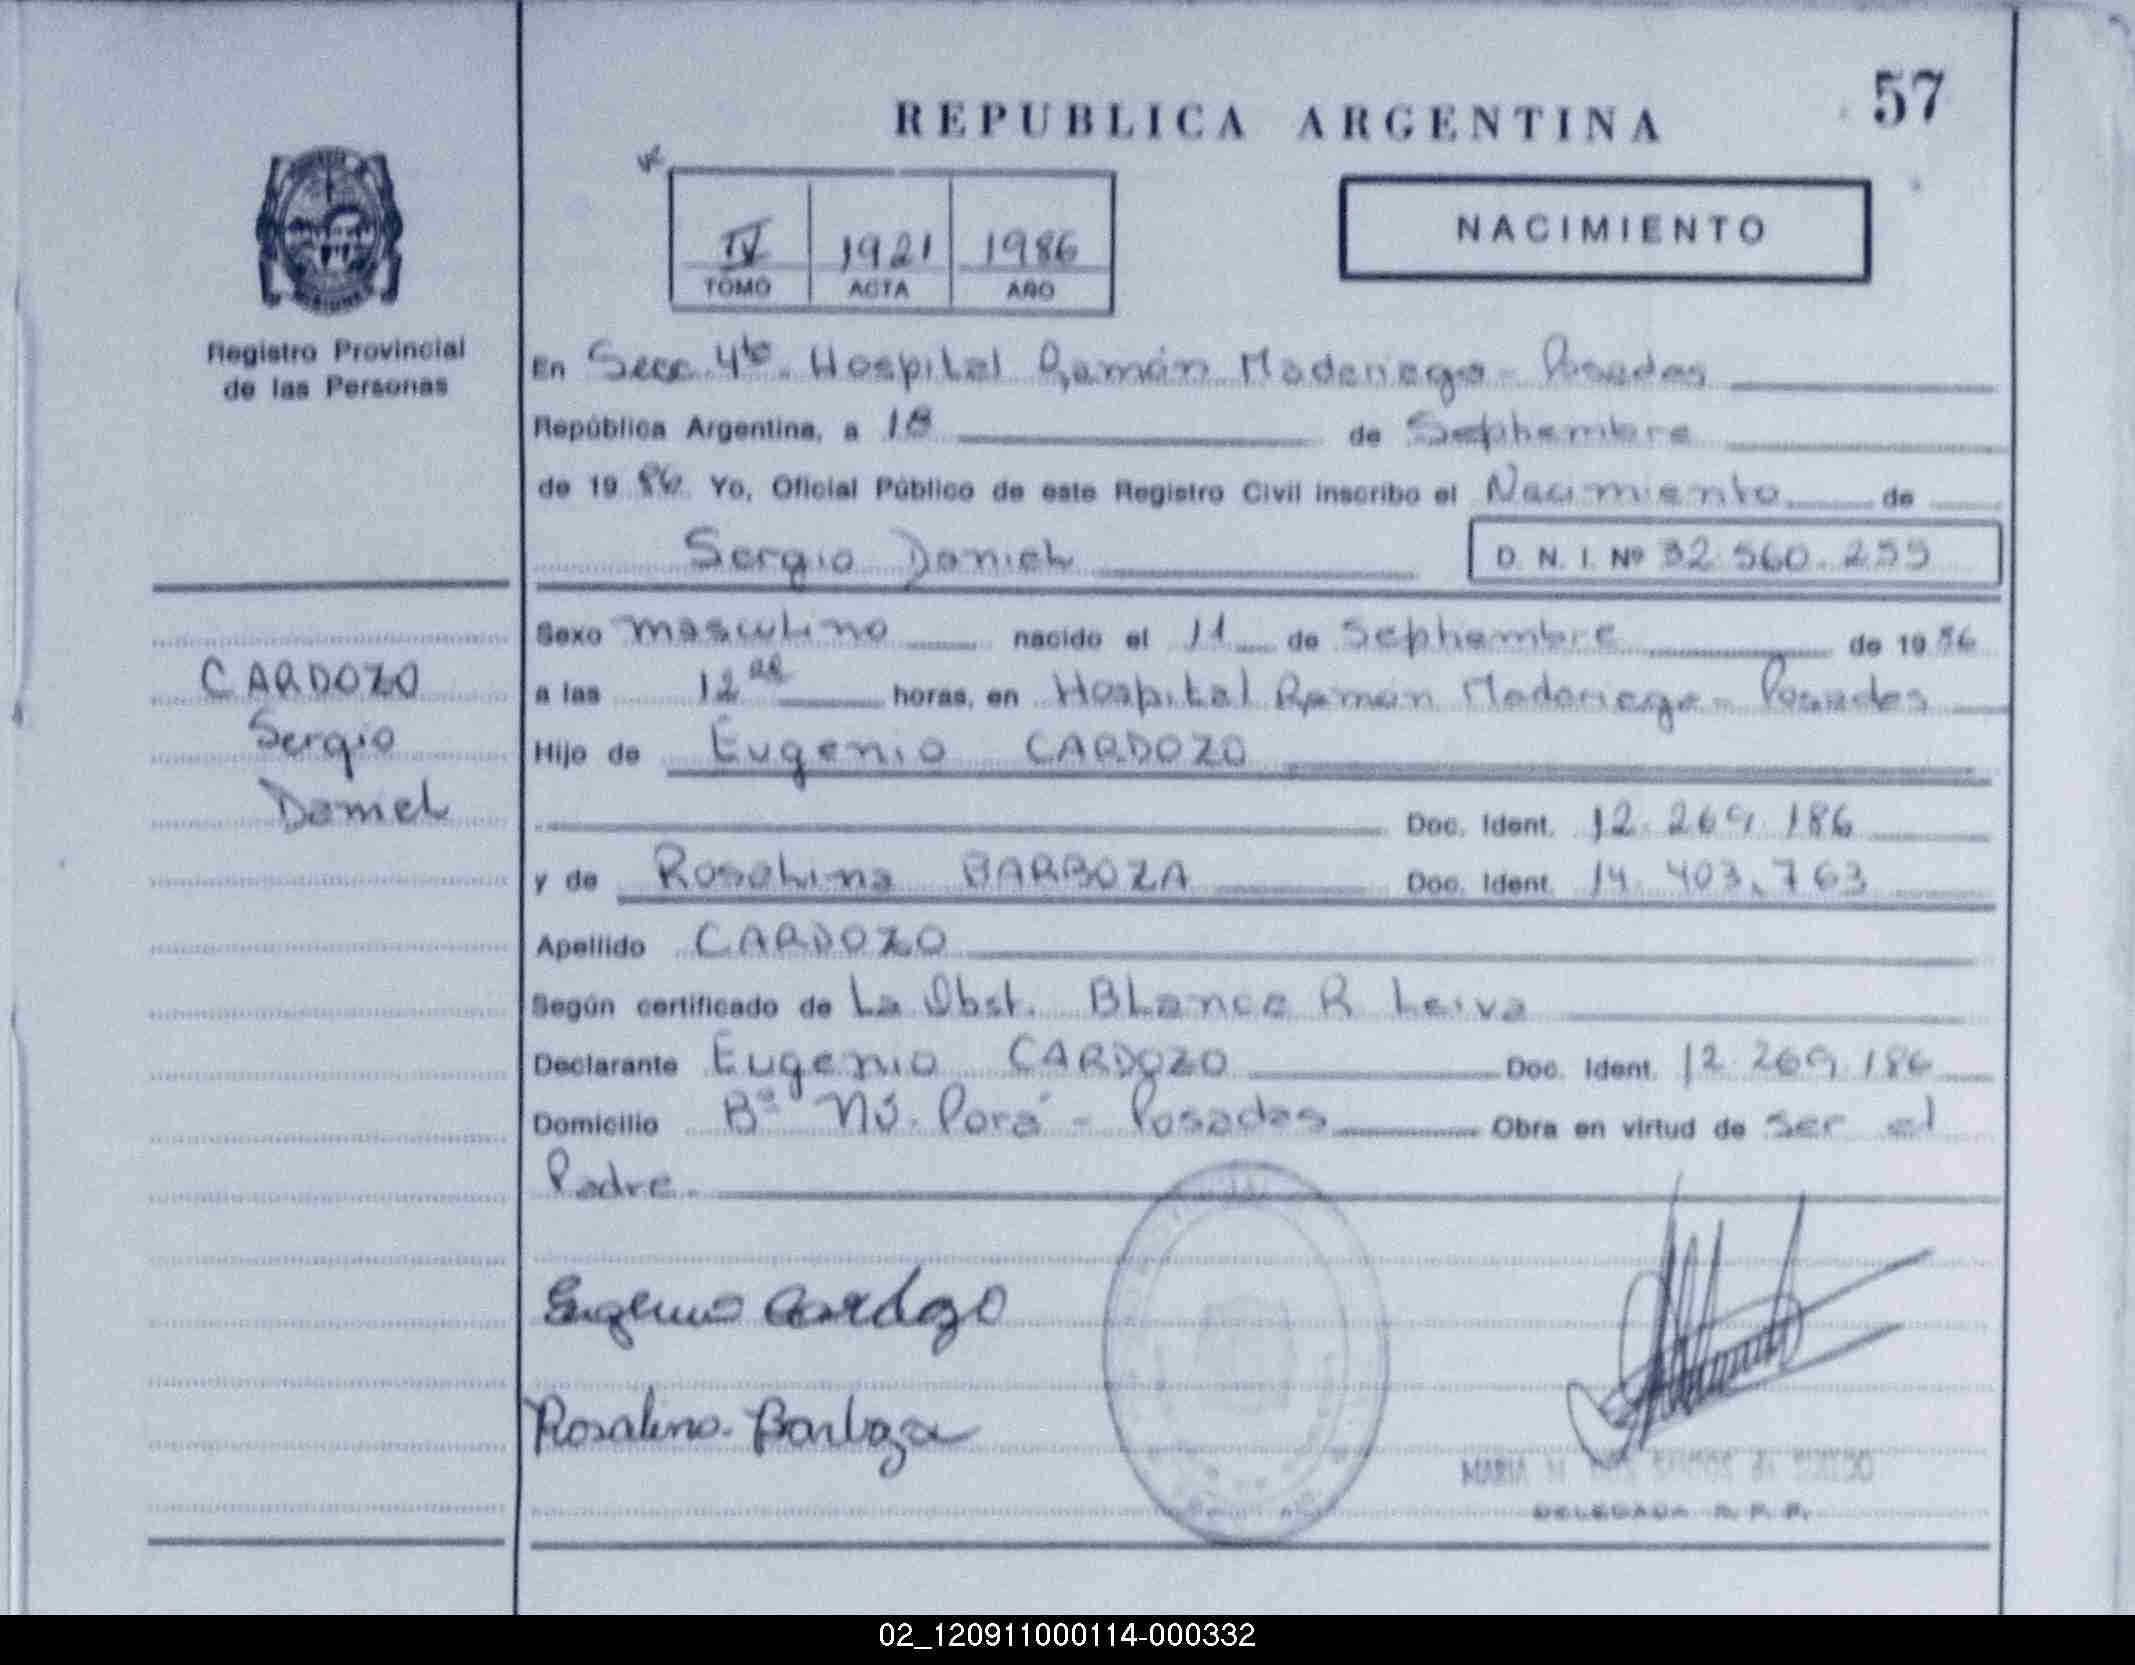 57
REPUBLICA ARGENTINA
NACIMIENTO
IV 1921 1986
TOMO ACTA AÑO
Registro Provincial
de las Personas
En Secc. 4ta. Hospital Ramón Madariaga - Posadas
República Argentina, a 18 de Septiembre
de 1986. Yo, Oficial Público de este Registro Civil inscribo el Nacimiento de
Sergio Daniel D. N. I. Nº 32.560.255
Sexo masculino nacido el 11 de Septiembre de 1986
CARDOZO
Sergio
Daniel
a las 12 horas, en Hospital Ramón Madariaga - Posadas
Hijo de Eugenio CARDOZO
Doc. Ident. 12.269.186
y de Rosalina BARBOZA Doc. Ident. 14.403.763
Apellido CARDOZO
Según certificado de La Obst. Blanca R Leiva
Declarante Eugenio CARDOZO Doc. Ident. 12.269.186
Domicilio Bº Ñú. Porá - Posadas Obra en virtud de ser el
Padre.
Eugenio Cardozo
Rosalina Barboza
MARIA
DELEGADA R. P. P.
02_120911000114-000332